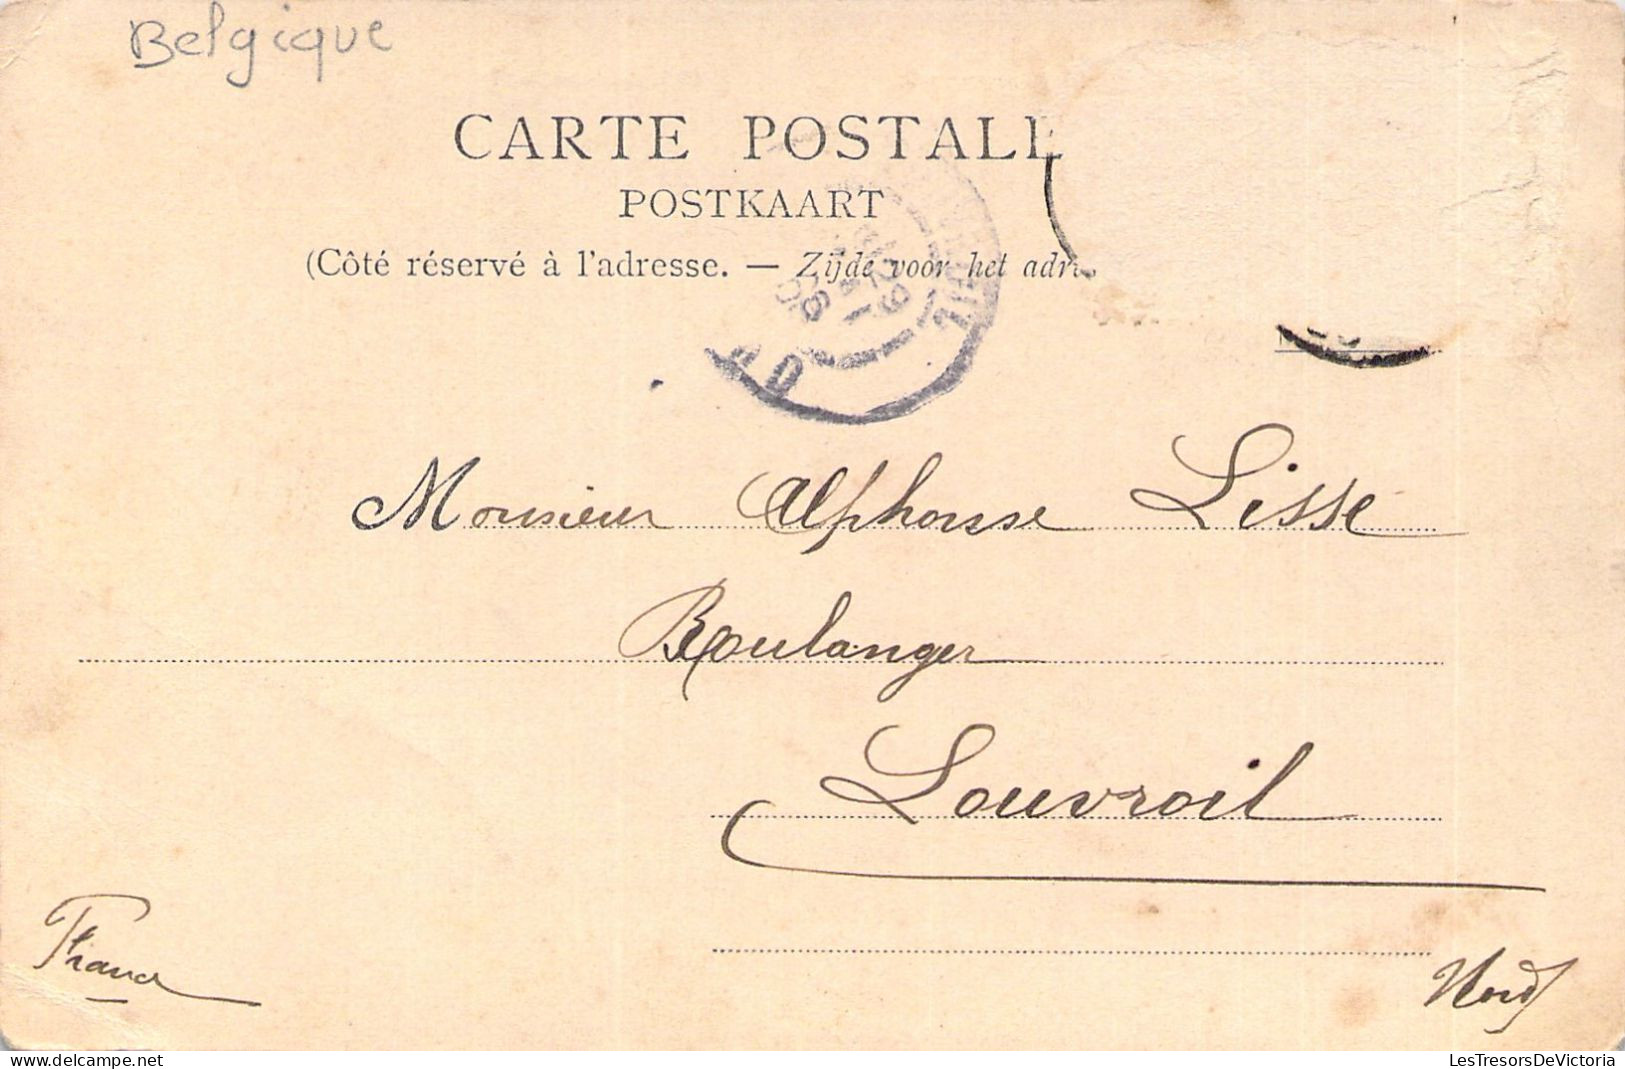 Belgique
CARTE POSTALE
POSTKAART
(Côté réservé à l'adresse. — Zijde voor het adr
Monsieur Alphonse Lisse
Boulanger
Louvroil
France
Nord
delcampe.net
LesTresorsDeVictoria